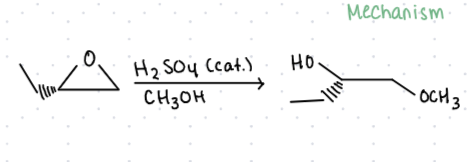 Mechanism
O
H2SO4 (cat.)
CH3OH
HO
OCH3